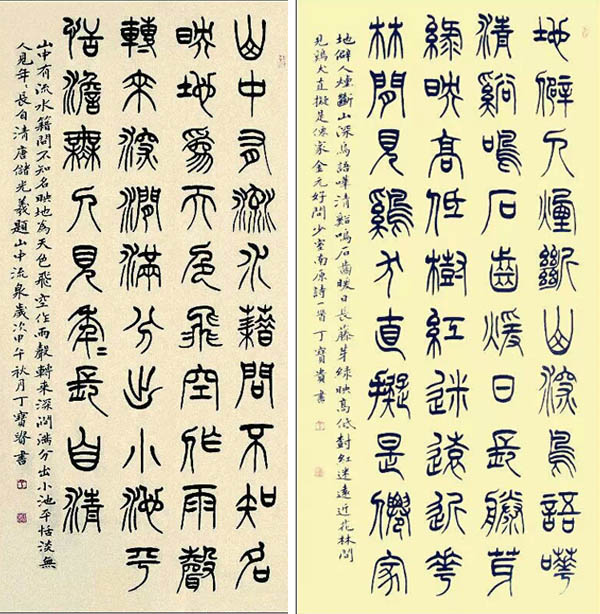 山中有流水藉問不知名
映地為天色飛空作雨聲
轉來深澗滿分出小池平
恬澹無人見年〻長自清
山中有流水籍問不知名映地為天色飛空作雨聲轉來深澗滿分出小池平恬淡無
人見年〻長自清唐儲光羲題山中流泉歲次甲午秋月丁寶貴書
地僻人煙斷山深鳥語嘩
清谿鳴石齒煖日長藤芽
綠映高低樹紅迷遠近花
林間見鷄犬直擬是僊家
地僻人煙斷山深鳥語嘩清谿鳴石齒暖日長藤芽綠映高低樹紅迷遠近花林間
見鷄犬直擬是僊家金元好問少室南原詩一首丁寶貴書